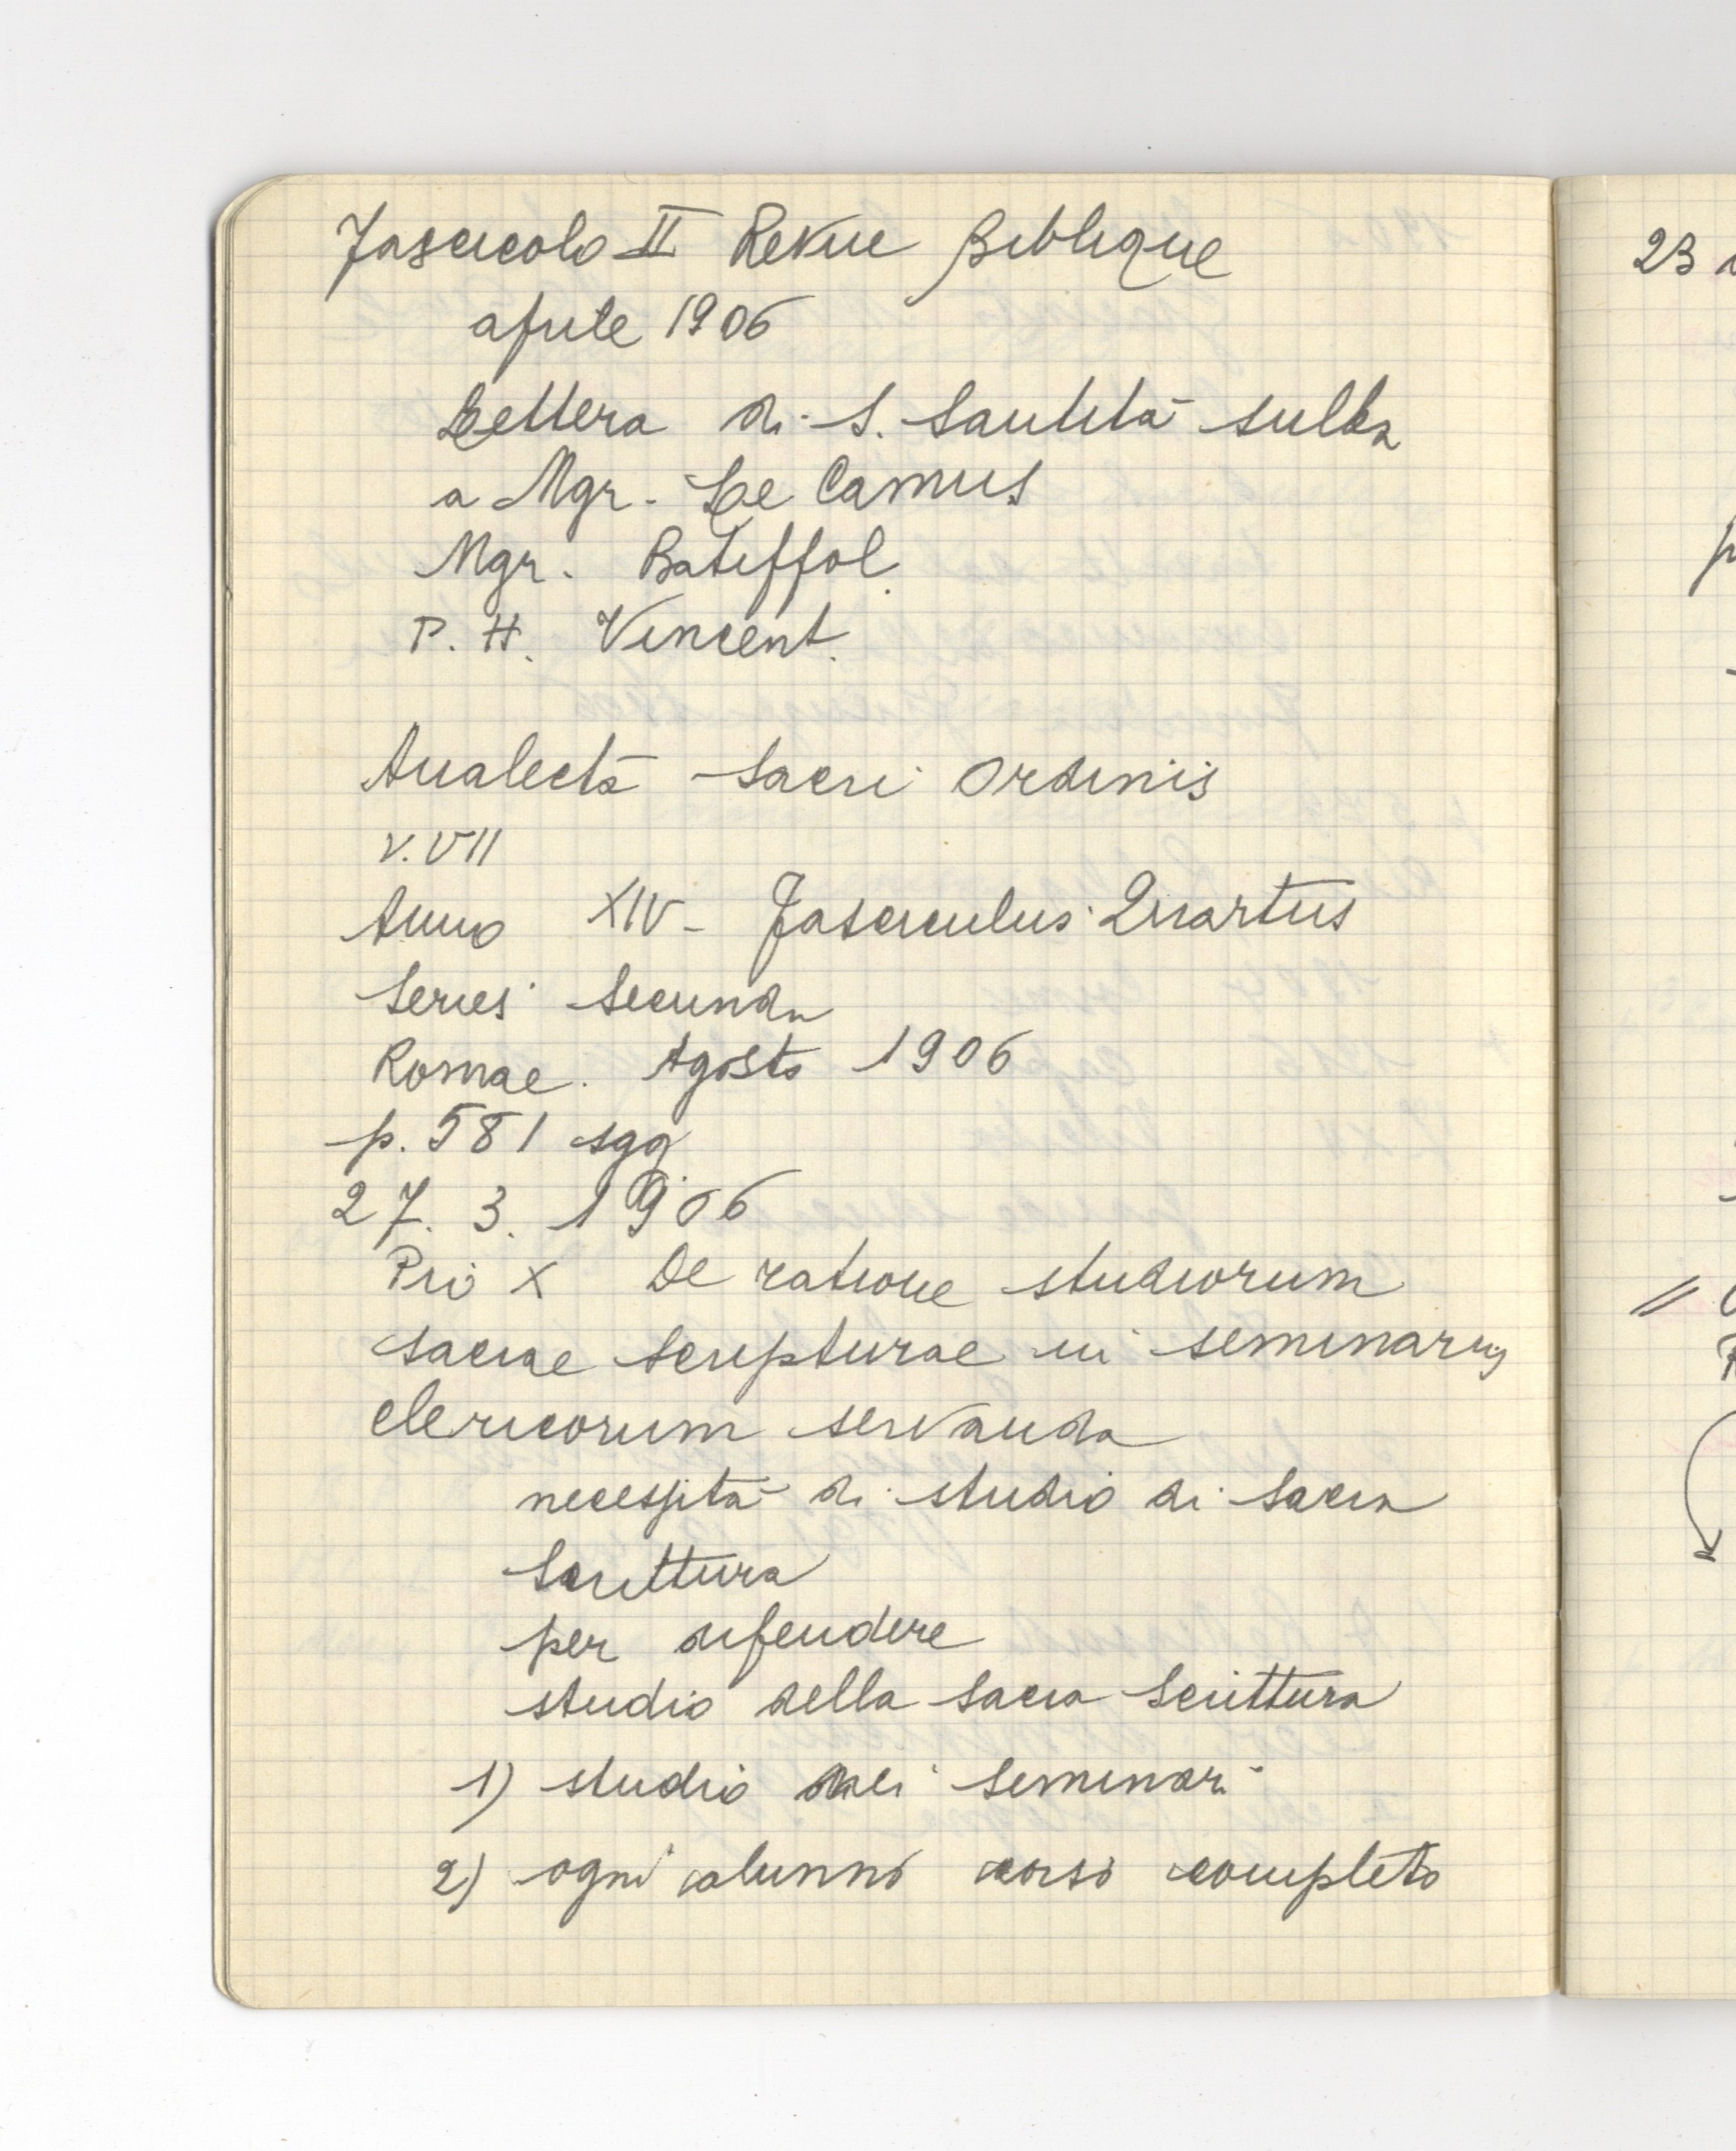 Fascicolo II Revue Biblique
aprile 1906
Lettera di S. Santità sulla
a Mgr. Le Camus
Mgr. Batiffol.
P. H. Vincent.
Analecta Sacri Ordinis
V. VII
Anno XIV - Fasciculus Quartus
Series Secunda
Romae. Agosto 1906
p. 581 sgg
27. 3. 1906
Pio X De ratione studiorum
sacrae scripturae in seminariis
clericorum servanda
necessità di studio di Sacra
Scrittura
per difendere
studio della Sacra Scrittura
1) studio nei seminari
2) ogni alunno corso completo
23
//